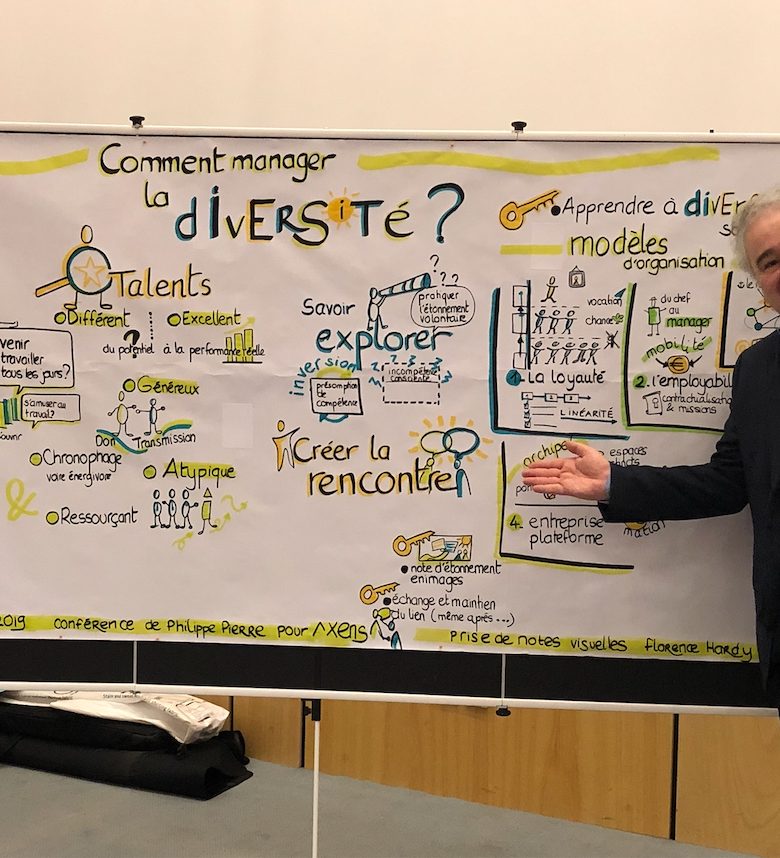 Comment manager
la
diVERSiTé ?
Talents
Différent
Excellent
du potentiel à la performance réelle
?
venir
travailler
tous les jours ?
s'amuser au
travail ?
Généreux
Don
Transmission
Chronophage
voire énergivore
Atypique
&
Ressourçant
Savoir
explorer
? ? ?
pratiquer
l'étonnement
volontaire
inversion
présomption
de
compétence
incompétence
consciente
Créer la
rencontre
note d'étonnement
en images
échange et maintien
du lien (même après ...)
Apprendre à
modèles
d'organisation
vocation
chance
1 La loyauté
LINÉARITÉ
du chef
au
manager
mobilité
€
2. l'employabil
contractualisation
& missions
espaces
4. entreprise
plateforme
mation
2019 conférence de Philippe Pierre pour Axens
Prise de notes visuelles Florence Hardy